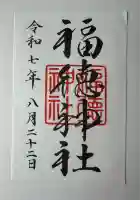 福徳神社
令和七年 八月二十二日